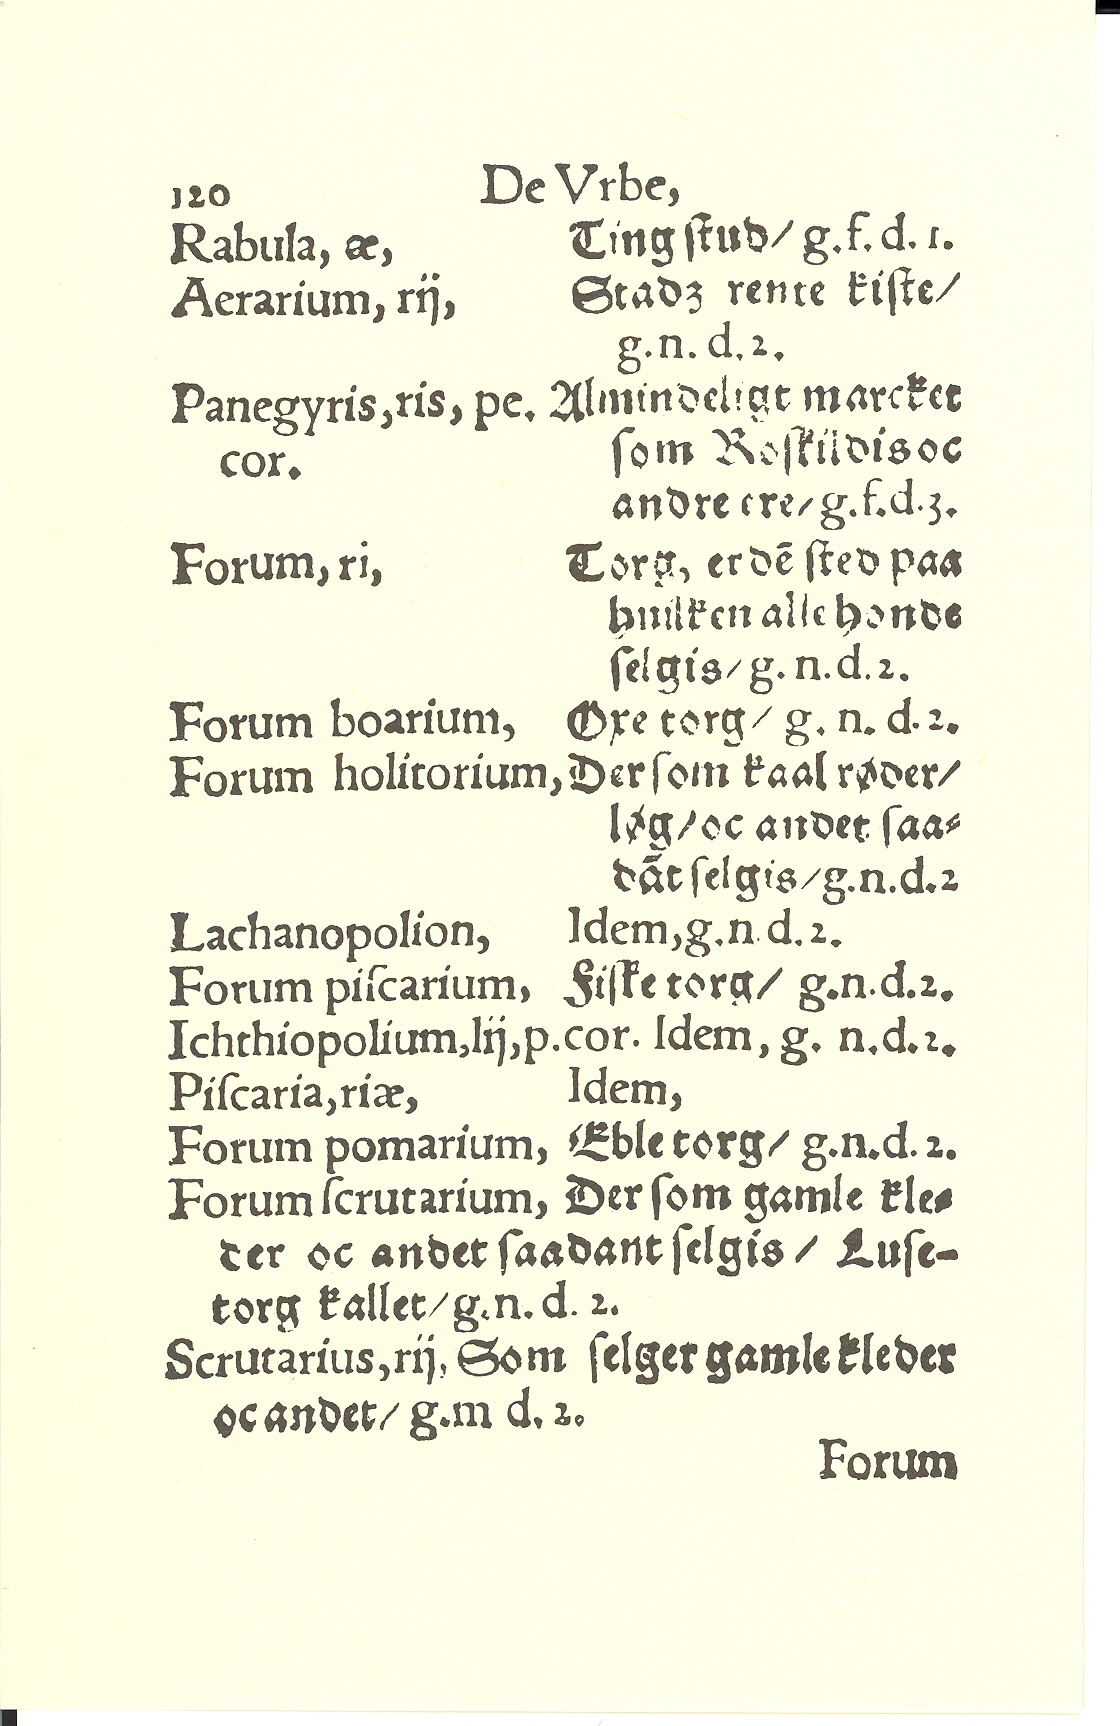 120 De Vrbe,
Rabula, æ, Ting ſtud/ g.f. d. 1.
Aerarium, rij, Stadz rente kiſte/
g.n. d. 2.
Panegyris, ris, pe. Almindeligt marcket
cor. ſom Roſkildis oc
andre ere/ g.f.d.3.
Forum, ri, Torg, er dē ſted paa
huilken alle honde
ſelgis/ g. n. d. 2.
Forum boarium, Oxe torg/ g. n. d. 2.
Forum holitorium, Der ſom kaal røder/
løg/ oc andet ſaa⸗
dāt ſelgis/ g.n.d.2
Lachanopolion, Idem, g.n. d. 2.
Forum piſcarium, Fiſke torg/ g.n.d.2.
Ichthiopolium, lij, p. cor. Idem, g. n.d.2.
Piſcaria, riæ, Idem,
Forum pomarium, Eble torg/ g.n.d. 2.
Forum ſcrutarium, Der ſom gamle kle⸗
der oc andet ſaadant ſelgis/ Luſe-
torg kallet/ g.n. d. 2.
Scrutarius, rij, Som ſelger gamle kleder
oc andet/ g.m d. 2.
Forum